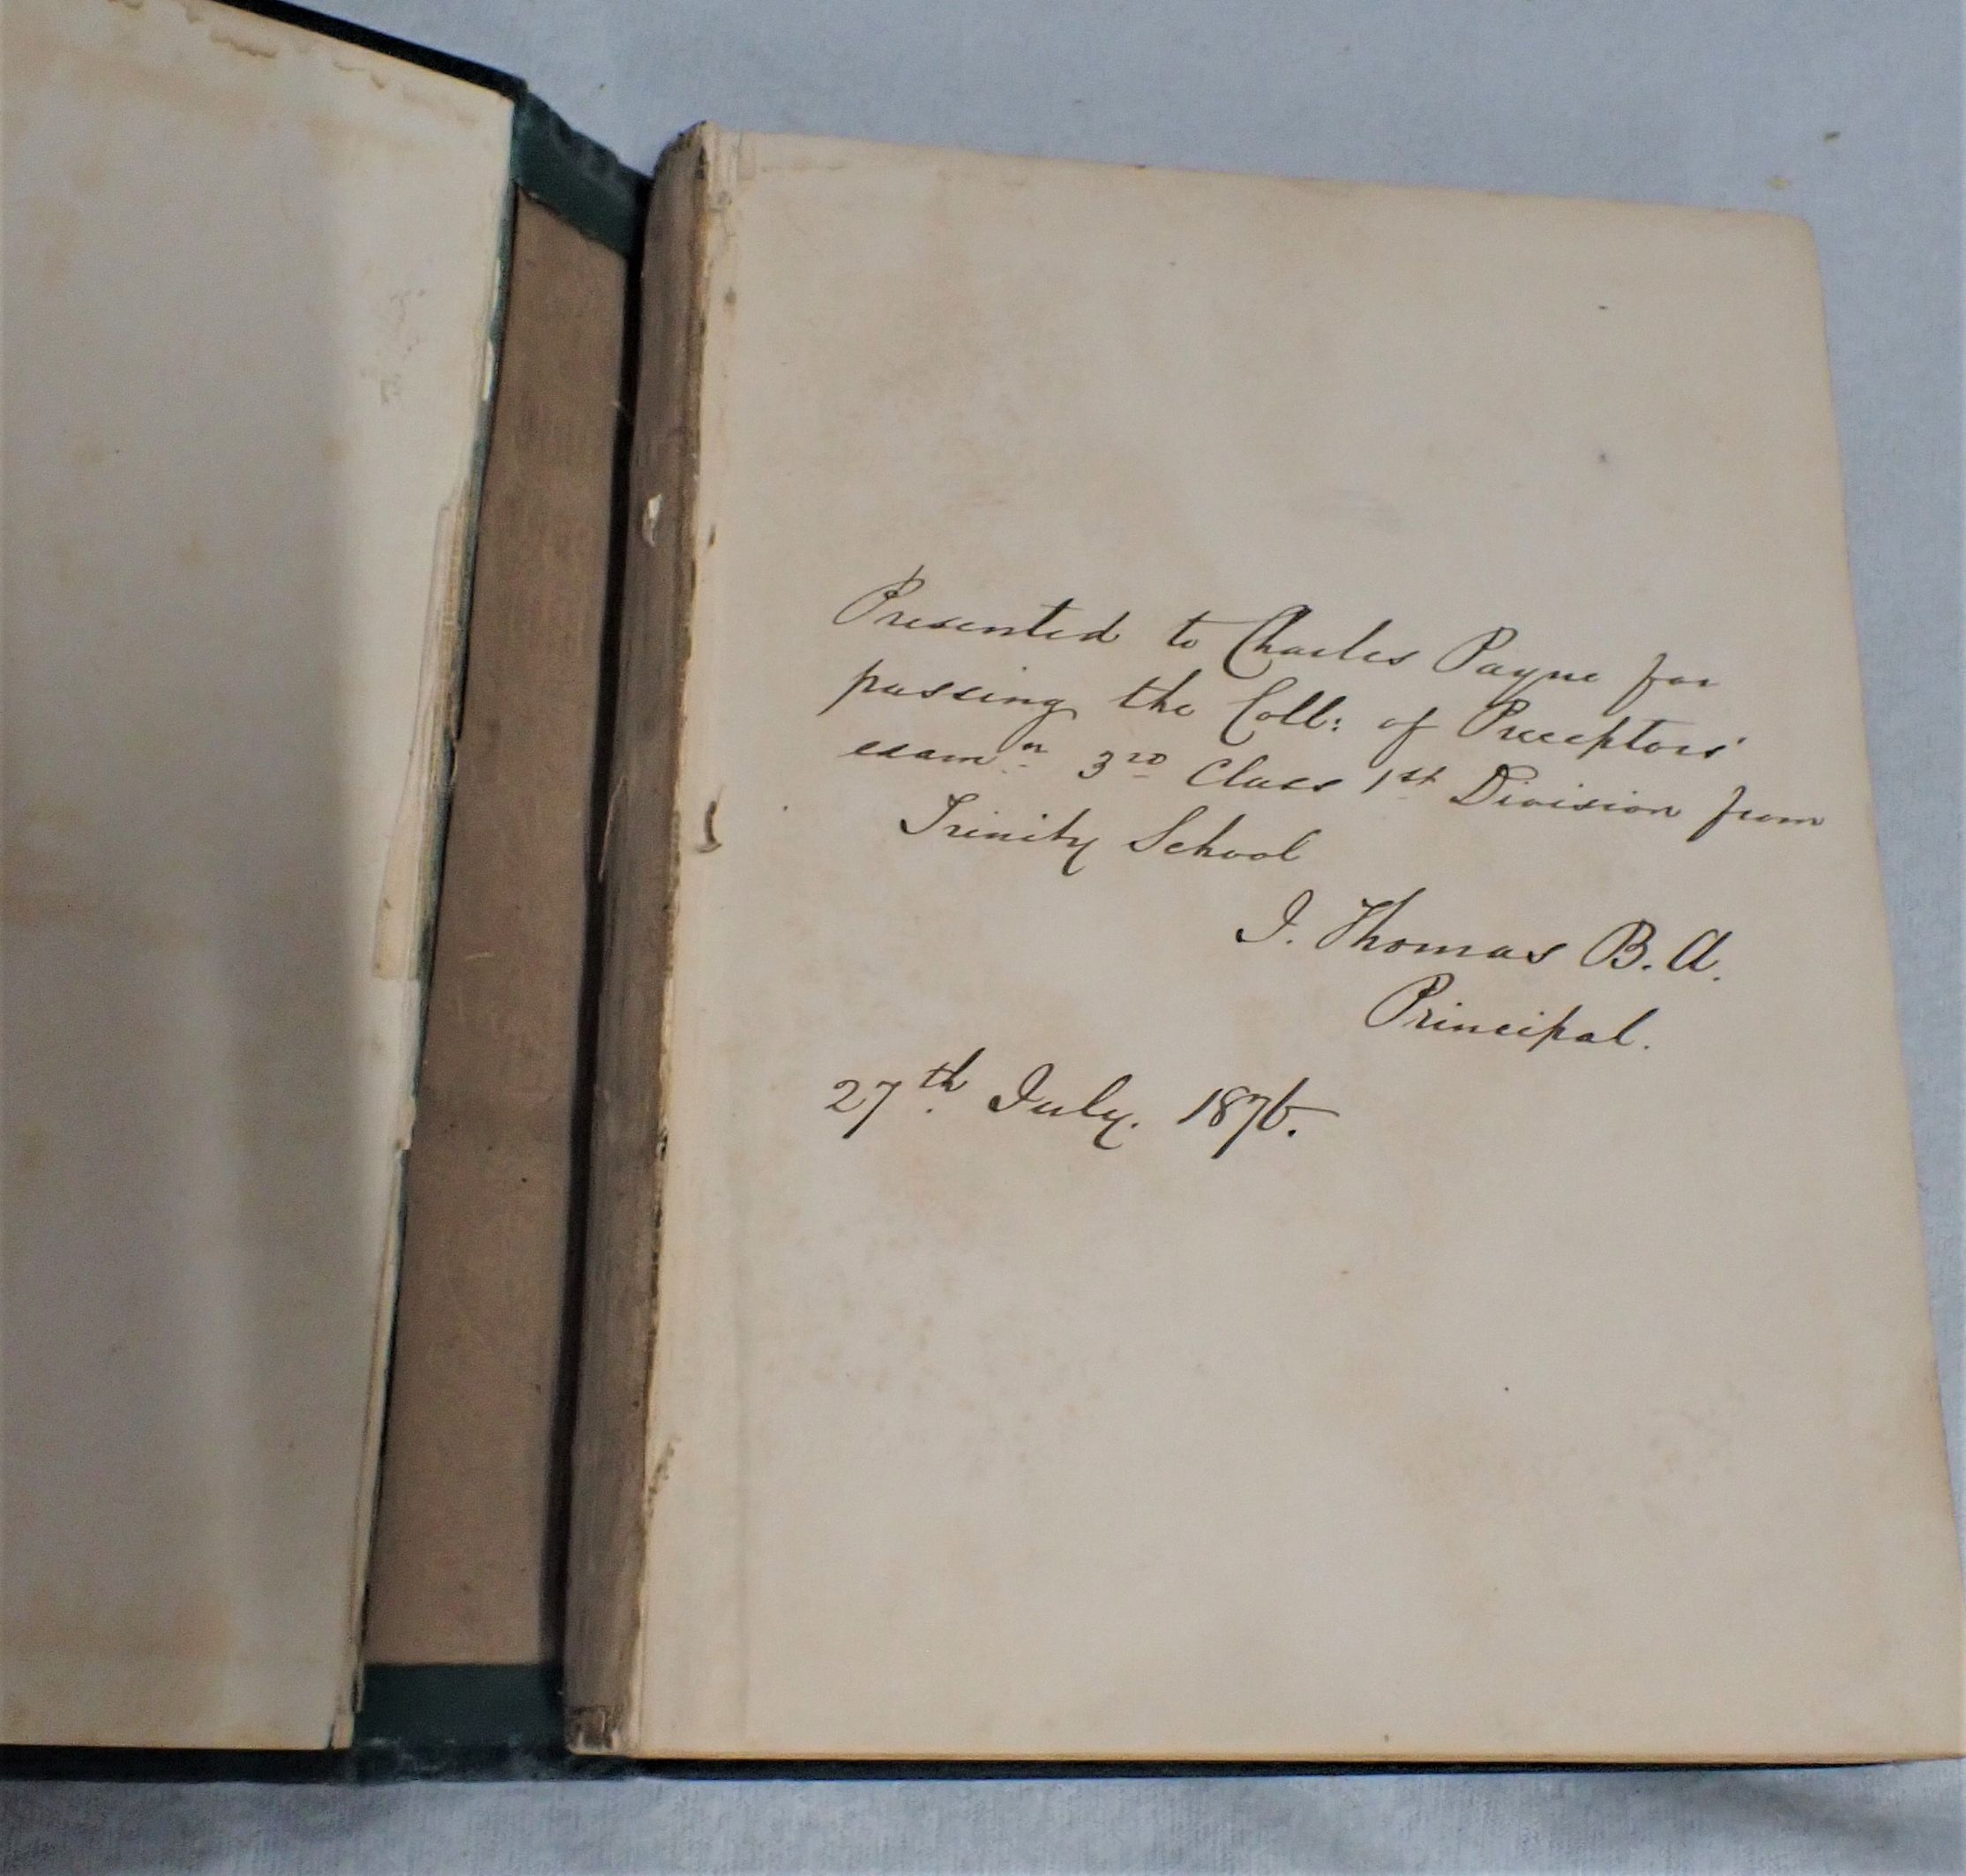 Presented to Charles Payne for
passing the Coll: of Preceptors'
exam.n 3rd Class 1st Division from
Trinity School
I. Thomas B.A.
Principal.
27th July. 1876.